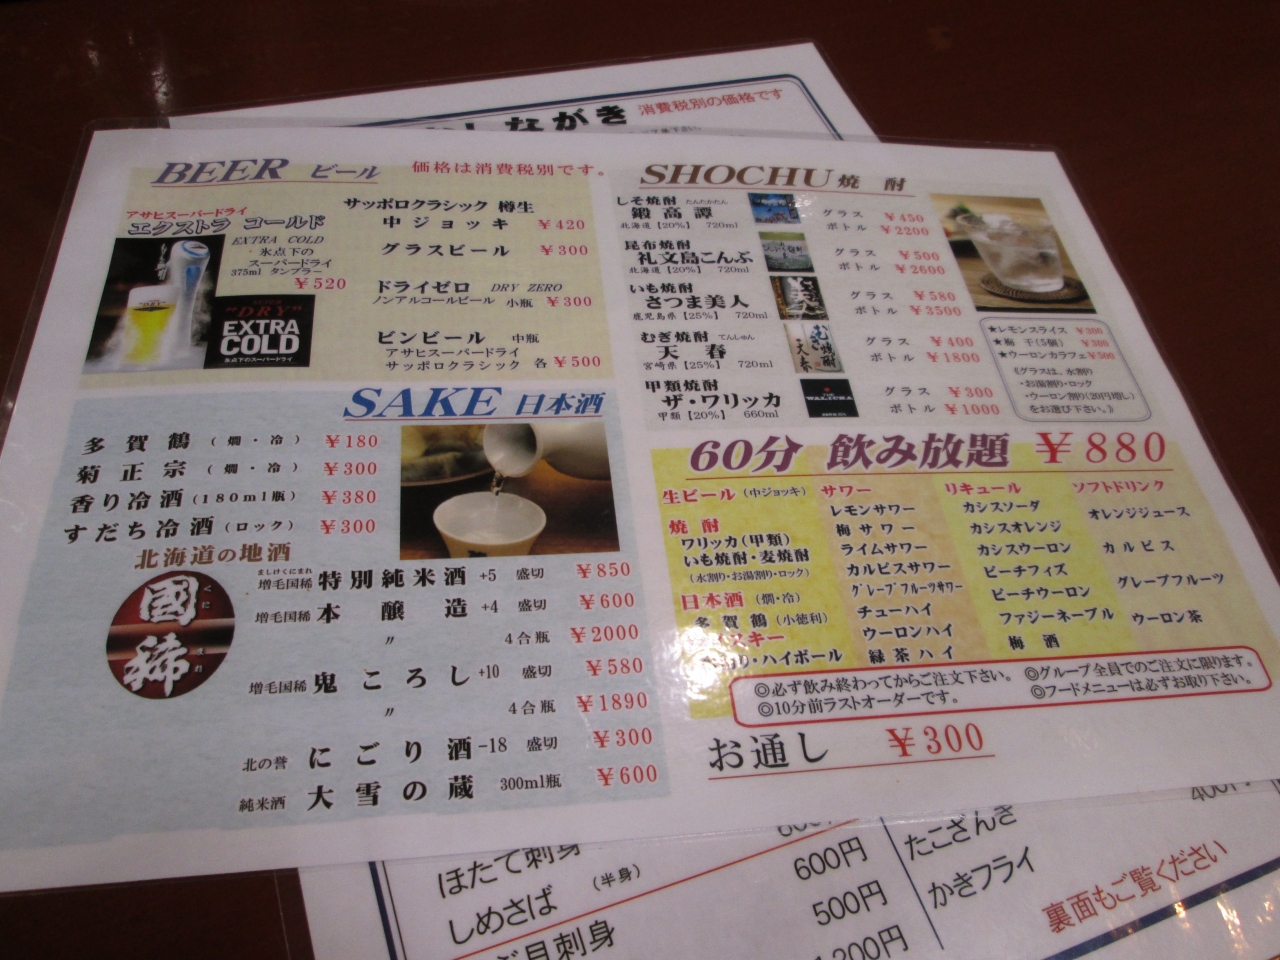 しながき 消費税別の価格です
BEER ビール 価格は消費税別です。
アサヒスーパードライ
エクストラ コールド
EXTRA COLD
氷点下の
スーパードライ
375ml タンブラー
￥520
SUPER
"DRY"
EXTRA
COLD
氷点下のスーパードライ
サッポロクラシック 樽生
中ジョッキ ￥420
グラスビール ￥300
ドライゼロ DRY ZERO
ノンアルコールビール 小瓶 ￥300
ビンビール 中瓶
アサヒスーパードライ
サッポロクラシック 各 ￥500
SAKE 日本酒
多賀鶴 (燗・冷) ￥180
菊正宗 (燗・冷) ￥300
香り冷酒 (180ml瓶) ￥380
すだち冷酒 (ロック) ￥300
北海道の地酒
國稀
くにまれ
ましけくにまれ
増毛国稀 特別純米酒 +5 盛切 ￥850
増毛国稀 本醸造 +4 盛切 ￥600
〃 4合瓶 ￥2000
増毛国稀 鬼ころし +10 盛切 ￥580
〃 4合瓶 ￥1890
北の誉 にごり酒 -18 盛切 ￥300
純米酒 大雪の蔵 300ml瓶 ￥600
SHOCHU 焼酎
しそ焼酎 たんたかたん
鍛高譚 グラス ￥450
北海道【20%】 720ml ボトル ￥2200
昆布焼酎
礼文島こんぶ グラス ￥500
北海道【20%】 720ml ボトル ￥2600
いも焼酎
さつま美人 グラス ￥580
鹿児島県【25%】 720ml ボトル ￥3500
むぎ焼酎 てんしゅん
天春 グラス ￥400
宮崎県【25%】 720ml ボトル ￥1800
甲類焼酎
ザ・ワリッカ グラス ￥300
甲類【20%】 660ml ボトル ￥1000
★レモンスライス ￥300
★梅干(5個) ￥300
★ウーロンカラフェ ￥500
《グラスは、水割り
・お湯割り・ロック
・ウーロン割り(20円増し)
をお選び下さい。》
60分 飲み放題 ￥880
生ビール (中ジョッキ)
焼酎
ワリッカ(甲類)
いも焼酎・麦焼酎
(水割り・お湯割り・ロック)
日本酒 (燗・冷)
多賀鶴 (小徳利)
イスキー
割り・ハイボール
サワー
レモンサワー
梅サワー
ライムサワー
カルピスサワー
グレープフルーツサワー
チューハイ
ウーロンハイ
緑茶ハイ
リキュール
カシスソーダ
カシスオレンジ
カシスウーロン
ピーチフィズ
ピーチウーロン
ファジーネーブル
梅酒
ソフトドリンク
オレンジジュース
カルピス
グレープフルーツ
ウーロン茶
◎必ず飲み終わってからご注文下さい。 ◎グループ全員でのご注文に限ります。
◎10分前ラストオーダーです。 ◎フードメニューは必ずお取り下さい。
お通し ￥300
ほたて刺身 600円
しめさば (半身) 500円
貝刺身 1200円
たこざんき
かきフライ
裏面もご覧ください